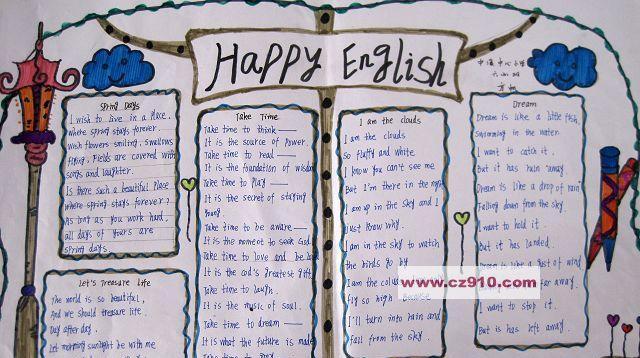 Happy English
Spring Days
I wish to live in a place.
where spring stays forever.
wish flowers smiling, swallows
flying, fields are covered with
songs and laughter.
Is there such a beautiful place
where spring stays forever?
As long as you work hard,
all days of yours are
spring days.
Let's Treasure Life
The world is so beautiful,
And we should treasure life.
Day after day.
Let morning sunlight be with me
Take Time
Take time to think —
It is the source of power.
Take time to read —
It is the foundation of wisdom
Take time to play —
It is the secret of staying
young.
Take time to be aware —
It is the moment to seek God.
Take time to love and be
It is the God's greatest gift.
Take time to laugh.
It is the music of soul.
Take time to dream —
It is what the future is made
Take time to pray
I am the clouds
I am the clouds
so fluffy and white
I know you can't see me
But I'm there in the night
I am up in the sky and I
just know why.
I am in the sky to watch
the birds go by
I am the
fly so high because
I'll turn into rain and
fall from the sky.
中心小学
Dream
Dream is like a little fish
Swimming in the water.
I want to catch it.
But it has ruin away.
Dream is like a drop of rain
Falling down from the sky.
I want to hold it.
But it has landed.
Dream is like a gust of wind
far away.
I want to stop it.
But is has left away.
www.cz910.com